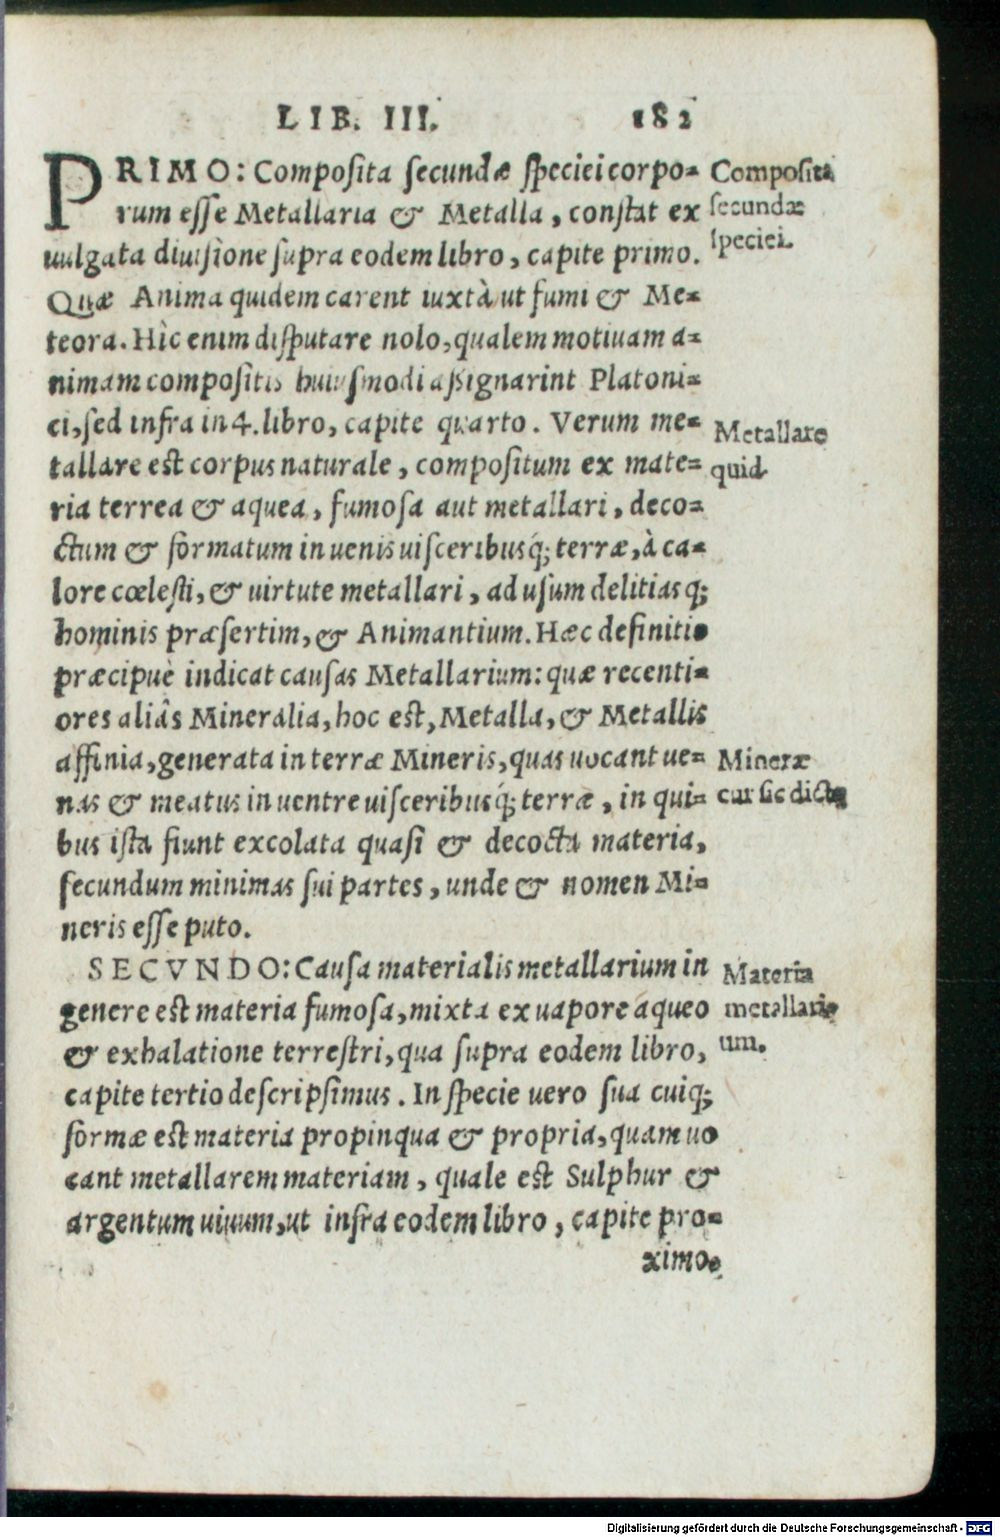 LIB. III. 182
PRIMO: Composita secundæ speciei corpo-
rum esse Metallaria & Metalla, constat ex
uulgata diuisione supra eodem libro, capite primo.
Quæ Anima quidem carent iuxtà ut fumi & Me-
teora. Hîc enim disputare nolo, qualem motiuam a-
nimam compositis huiusmodi assignarint Platoni-
ci, sed infra in 4. libro, capite quarto. Verum me-
tallare est corpus naturale, compositum ex mate-
ria terrea & aquea, fumosa aut metallari, deco-
ctum & formatum in uenis uisceribusq́; terræ, à ca-
lore cœlesti, & uirtute metallari, ad usum delitiasq;
hominis præsertim, & Animantium. Hæc definitio
præcipuè indicat causas Metallarium: quæ recenti-
ores aliâs Mineralia, hoc est, Metalla, & Metallis
affinia, generata in terræ Mineris, quas uocant ue-
nas & meatus in uentre uisceribusq́; terræ, in qui-
bus ista fiunt excolata quasi & decocta materia,
secundum minimas sui partes, unde & nomen Mi-
neris esse puto.
SECVNDO: Causa materialis metallarium in
genere est materia fumosa, mixta ex uapore aqueo
& exhalatione terrestri, qua supra eodem libro,
capite tertio descripsimus. In specie uero sua cuiq;
formæ est materia propinqua & propria, quam uo
cant metallarem materiam, quale est Sulphur &
argentum uiuum, ut infra eodem libro, capite pro-
ximo.
Composita
secundæ
speciei.
Metallare
quid.
Mineræ
cur sic dictæ
Materia
metallari-
um.
Digitalisierung gefördert durch die Deutsche Forschungsgemeinschaft - DFG